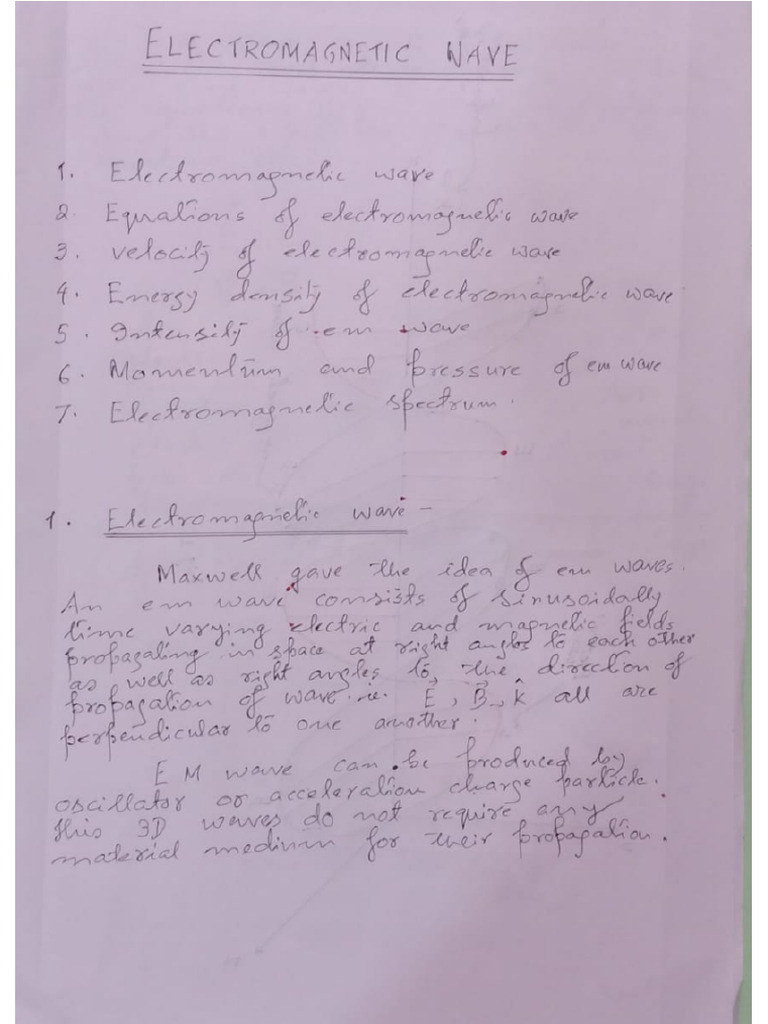 ELECTROMAGNETIC WAVE
1. Electromagnetic wave
2. Equations of electromagnetic wave
3. Velocity of electromagnetic wave
4. Energy density of electromagnetic wave
5. Intensity of em wave
6. Momentum and pressure of em wave
7. Electromagnetic spectrum.
1. Electromagnetic wave -
Maxwell gave the idea of em waves.
An em wave consists of sinusoidally
time varying electric and magnetic fields
propagating in space at right angles to each other
as well as right angles to, the direction of
propagation of wave. ie. E⃗, B⃗, k̂ all are
perpendicular to one another.
EM wave can be produced by
oscillator or acceleration charge particle.
this 3D waves do not require any
material medium for their propagation.